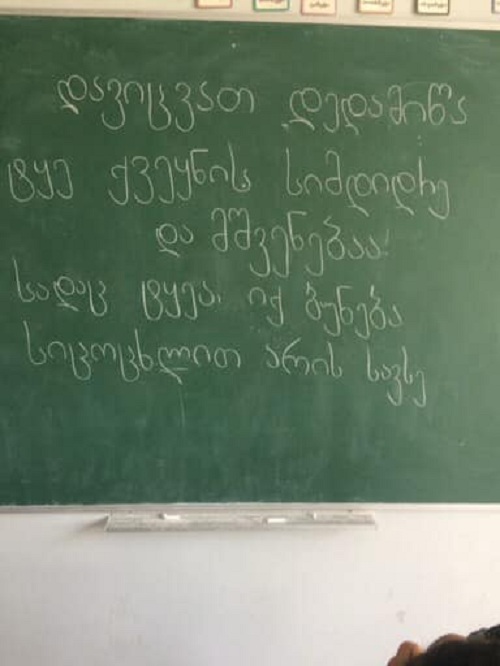 დავიცვათ დედამიწა
ტყე ქვეყნის სიმდიდრე
და მშვენებაა!
სადაც ტყეა, იქ ბუნება
სიცოცხლით არის სავსე